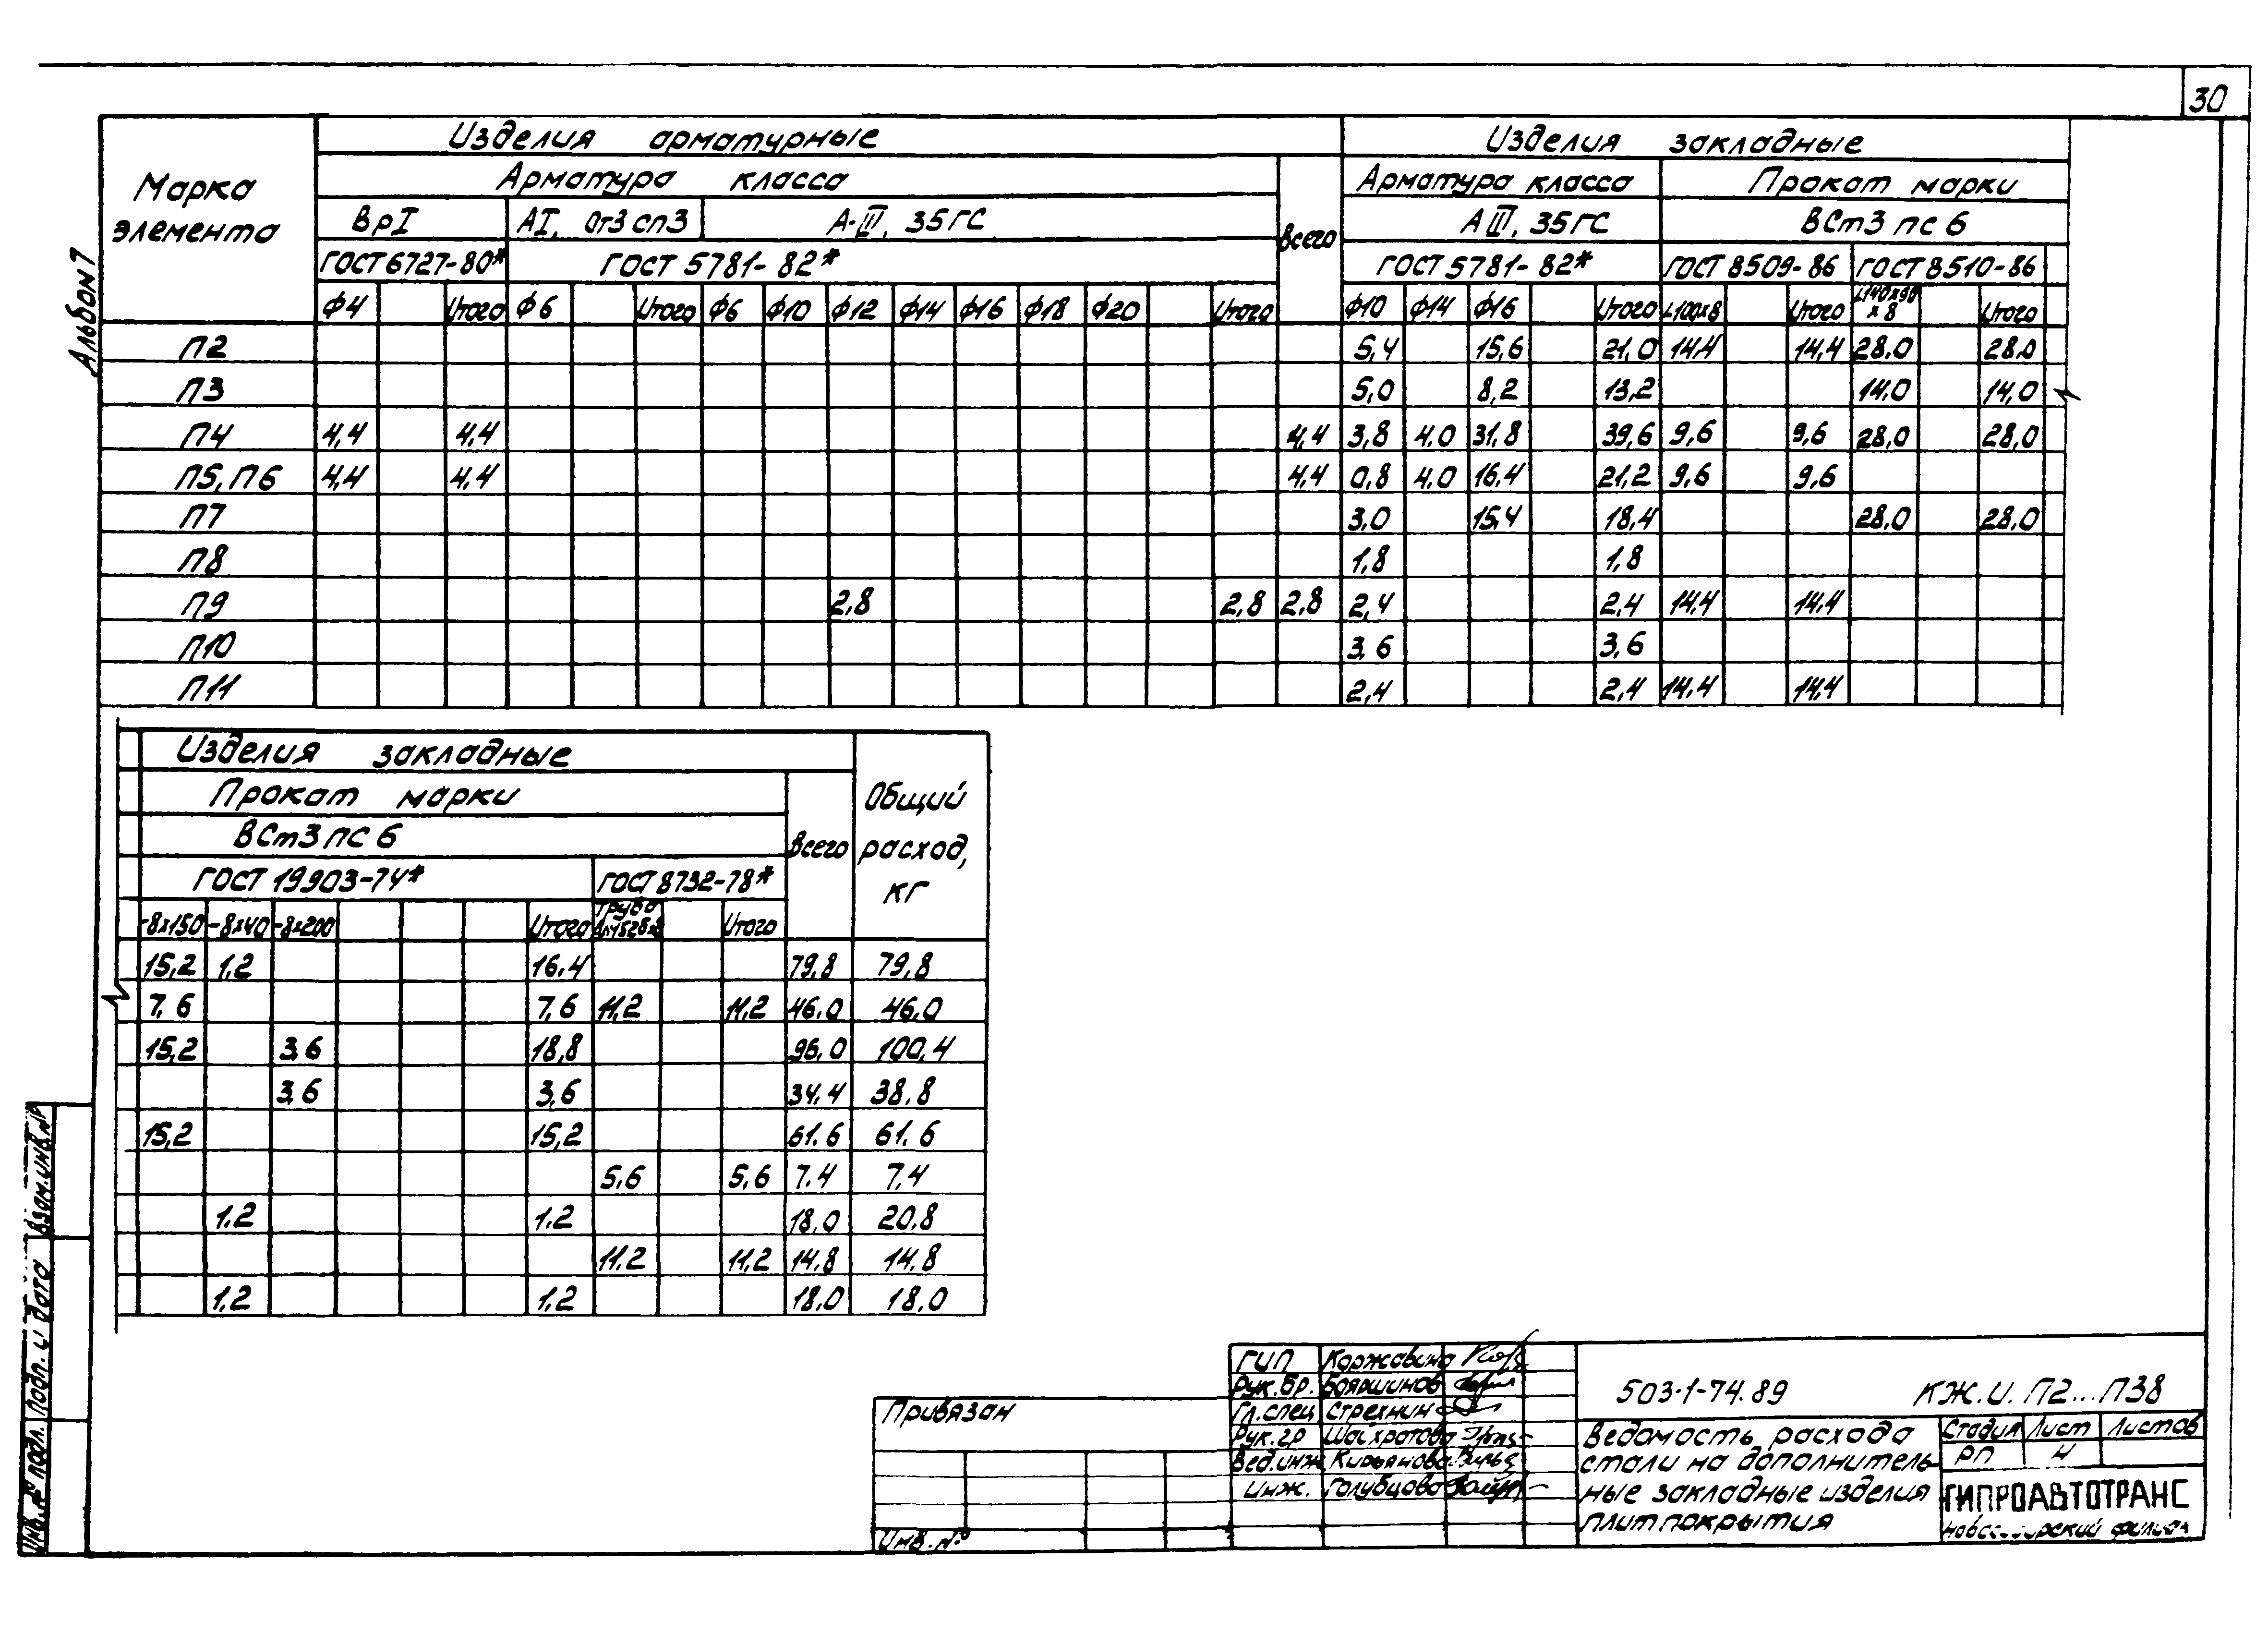 30
Альбом 7
Марка элемента
Изделия арматурные
Изделия закладные
Арматура класса
Всего
Арматура класса
Прокат марки
ВрI
АI, Ст3 сп3
А-III, 35ГС
АIII, 35ГС
ВСт3 пс 6
ГОСТ 6727-80*
ГОСТ 5781-82*
ГОСТ 5781-82*
ГОСТ 8509-86
ГОСТ 8510-86
ϕ4 Итого ϕ6 Итого ϕ6 ϕ10 ϕ12 ϕ14 ϕ16 ϕ18 ϕ20 Итого ϕ10 ϕ14 ϕ16 Итого L100х8 Итого L140х90х8 Итого
П2 5,4 15,6 21,0 14,4 14,4 28,0 28,0
П3 5,0 8,2 13,2 14,0 14,0
П4 4,4 4,4 4,4 3,8 4,0 31,8 39,6 9,6 9,6 28,0 28,0
П5, П6 4,4 4,4 4,4 0,8 4,0 16,4 21,2 9,6 9,6
П7 3,0 15,4 18,4 28,0 28,0
П8 1,8 1,8
П9 2,8 2,8 2,8 2,4 2,4 14,4 14,4
П10 3,6 3,6
П11 2,4 2,4 14,4 14,4
Изделия закладные
Общий расход, кг
Прокат марки
Всего
ВСт3 пс 6
ГОСТ 19903-74*
ГОСТ 8732-78*
-8х150 -8х40 -8х200 Итого Труба Итого
15,2 1,2 16,4 79,8 79,8
7,6 7,6 11,2 11,2 46,0 46,0
15,2 3,6 18,8 96,0 100,4
3,6 3,6 34,4 38,8
15,2 15,2 61,6 61,6
5,6 5,6 7,4 7,4
1,2 1,2 18,0 20,8
11,2 11,2 14,8 14,8
1,2 1,2 18,0 18,0
Инв. № подл.
Подп. и дата
Взам. инв. №
Привязан
Инв. №
ГИП Коржавина
Рук. бр. Бояршинов
Гл. спец Стрехнин
Рук. гр Шайхратова
Вед. инж Кирьянова
Инж. Голубцова
503-1-74.89 КЖ.И. П2...П38
Ведомость расхода
стали на дополнитель-
ные закладные изделия
плит покрытия
Стадия Лист Листов
РП Н
ГИПРОАВТОТРАНС
филиал